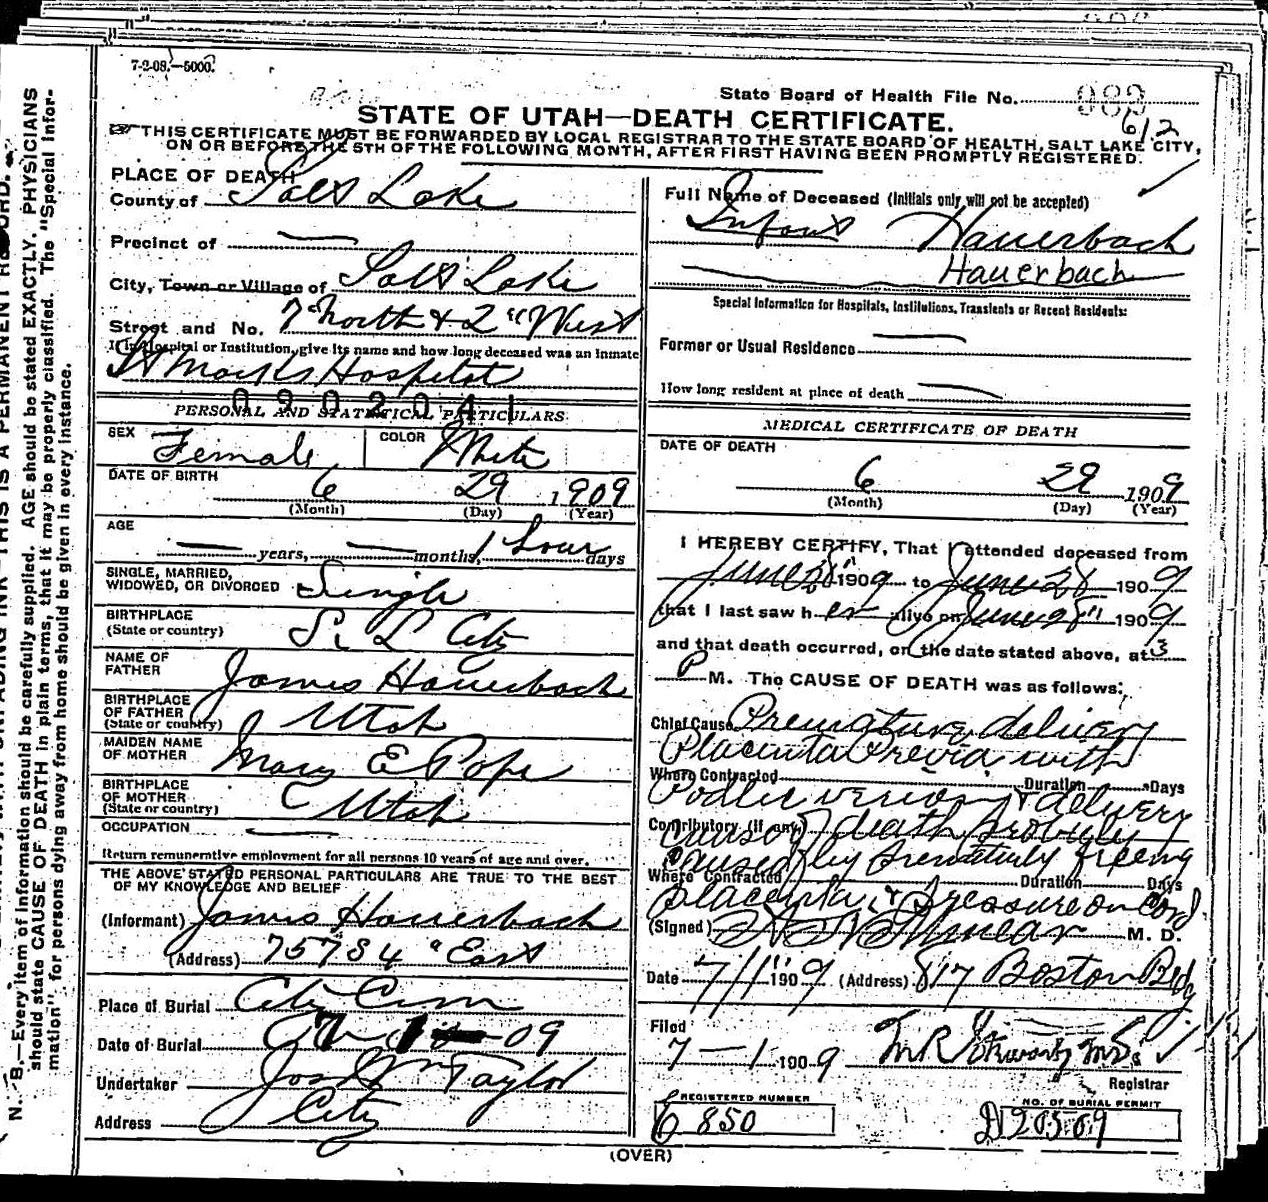 7-2-08.—5000.
State Board of Health File No. 989
612
STATE OF UTAH—DEATH CERTIFICATE.
THIS CERTIFICATE MUST BE FORWARDED BY LOCAL REGISTRAR TO THE STATE BOARD OF HEALTH, SALT LAKE CITY,
ON OR BEFORE THE 5TH OF THE FOLLOWING MONTH, AFTER FIRST HAVING BEEN PROMPTLY REGISTERED.
PLACE OF DEATH
County of Salt Lake
Precinct of —
City, Town or Village of Salt Lake
Street and No. 7 North & 2 " West
If in Hospital or Institution, give its name and how long deceased was an inmate
St Marks Hospital
090204 1
PERSONAL AND STATISTICAL PARTICULARS
SEX Female COLOR White
DATE OF BIRTH
6 29 1909
(Month) (Day) (Year)
AGE
— years, — months, 1 hour days
SINGLE, MARRIED,
WIDOWED, OR DIVORCED Single
BIRTHPLACE
(State or country) S. L City
NAME OF
FATHER James Hauerbach
BIRTHPLACE
OF FATHER
(State or country) Utah
MAIDEN NAME
OF MOTHER Mary E Pope
BIRTHPLACE
OF MOTHER
(State or country) Utah
OCCUPATION —
Return remunerative employment for all persons 10 years of age and over.
THE ABOVE STATED PERSONAL PARTICULARS ARE TRUE TO THE BEST
OF MY KNOWLEDGE AND BELIEF
(Informant) James Hauerbach
(Address) 757 S 4 " East
Place of Burial City Cem
Date of Burial 09
Undertaker Jos Wm Taylor
Address City
Full Name of Deceased (Initials only will not be accepted)
Infant Hauerbach
Hauerbach
Special Information for Hospitals, Institutions, Transients or Recent Residents:
Former or Usual Residence —
How long resident at place of death —
MEDICAL CERTIFICATE OF DEATH
DATE OF DEATH
6 29 1909
(Month) (Day) (Year)
I HEREBY CERTIFY, That I attended deceased from
June 28" 1909 to June 28 1909
that I last saw her alive on June 28" 1909
and that death occurred, on the date stated above, at 3
P M. The CAUSE OF DEATH was as follows:
Chief Cause Premature delivery
Placenta Previa with
Where Contracted Duration Days
Podlic version & delivery
Contributory (if any)
Cause of death probably
caused by prematurely freeing
Where Contracted Duration Days
placenta & pressure on cord
(Signed) M. D.
Date 7/1" 1909 (Address) 817 Boston Bldg
Filed
7 — 1 1909 M R Stewart MD
Registrar
REGISTERED NUMBER
6850
NO. OF BURIAL PERMIT
D 20509
(OVER)
N. B.—Every item of information should be carefully supplied. AGE should be stated EXACTLY. PHYSICIANS
should state CAUSE OF DEATH in plain terms, that it may be properly classified. The "Special Infor-
mation" for persons dying away from home should be given in every instance.